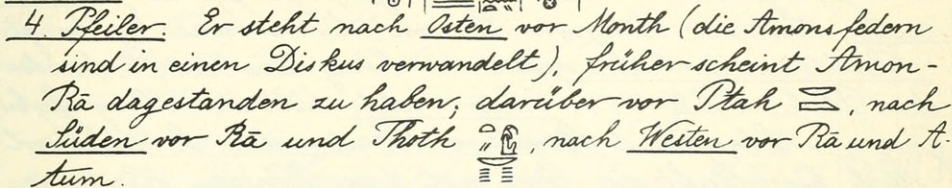 4. Pfeiler. Er steht nach Osten vor Month (die Amonsfedern
sind in einen Diskus verwandelt), früher scheint Amon-
Rā dagestanden zu haben; darüber vor Ptah, nach
Süden vor Rā und Thoth, nach Westen vor Rā und A-
tum.